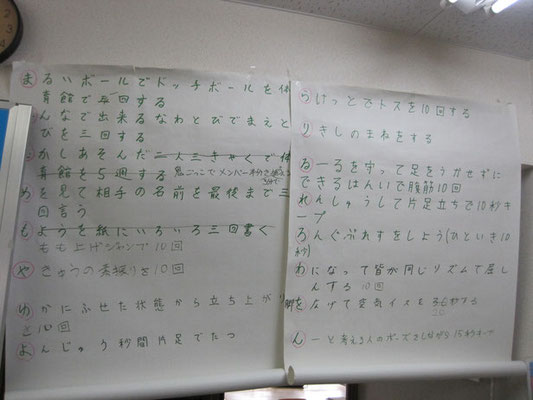 まるいボールでドッチボールを体
育館で 回する
んなで出来るなわとびでまえと
びを三回する
かしあそんだ二人三きゃくで体
育館を5週する 鬼ごっこでメンバー
めを見て相手の名前を最後まで三
回言う
もようを紙にいろいろ三回書く
もも上げジャンプ10回
やきゅうの素振りを10回
ゆかにふせた状態から立ち上がり
を10回
よんじゅう秒間片足でたつ
らけっとでトスを10回する
りきしのまねをする
るーるを守って足をうかせずに
できるはんいで腹筋10回
れんしゅうして片足立ちで10秒キ
ープ
ろんぐぶれすをしよう(ひといき10
秒)
わになって皆が同じリズムで屈し
んする 10回
を広げて空気イスを 秒する
20
んーと考える人のポーズをしながら15秒キープ